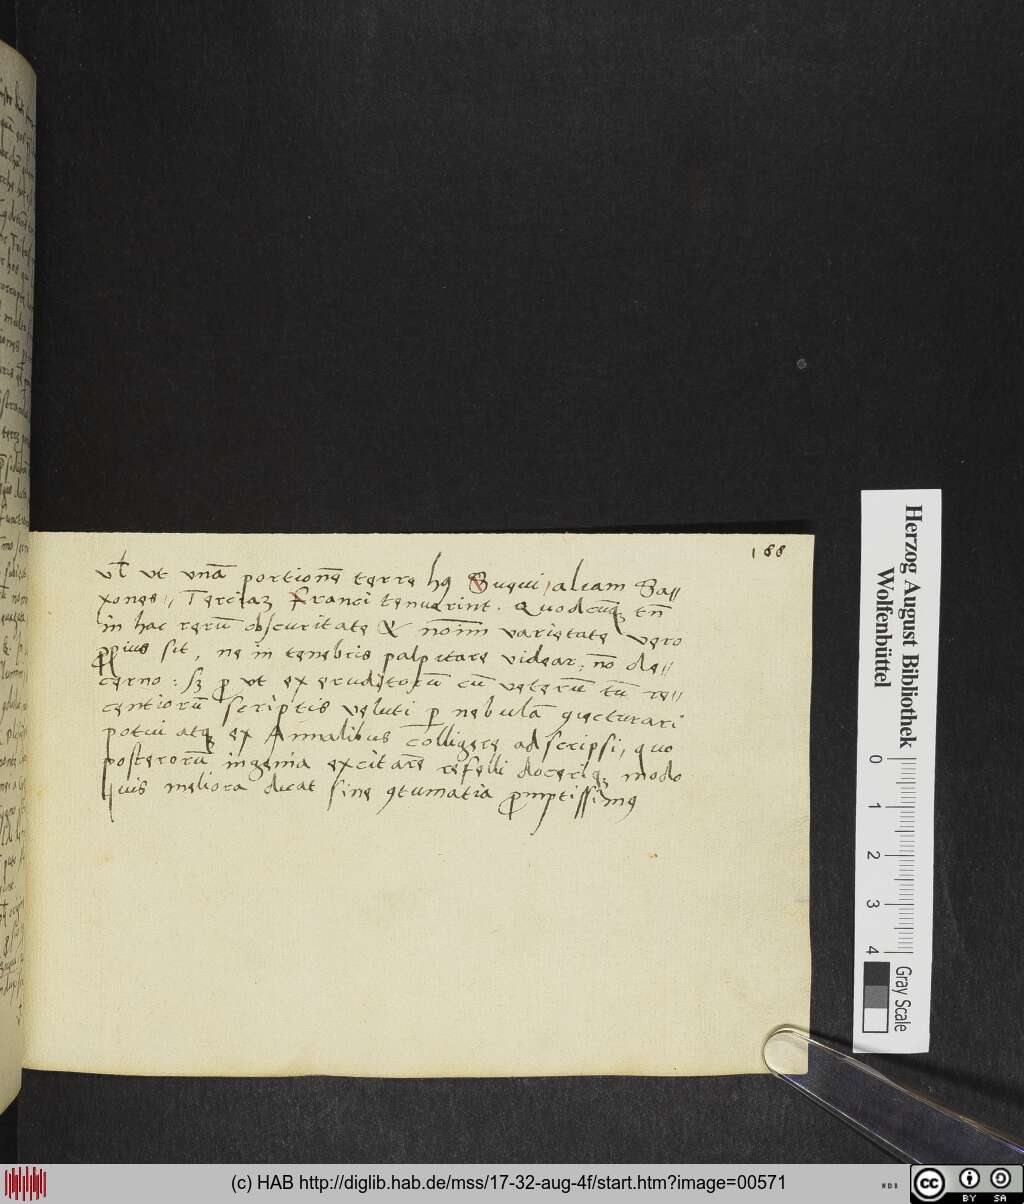 188
vl̄ ut vnā portionē terre hęc Sueui, aliam Sa//
xones, Terciaȝ Franci tenuerint. Quodcūqȝ tn̄
in hac rerū obscuritate & noīm varietate vero
ꝓpius sit, ne in tenebris palpitare videar, nō de//
cerno: sȝ ꝓ vt ex eruditorū cū veterū tū re//
centiorū scriptis veluti ꝑ nebulā ꝯiecturari
potui atqȝ ex Annalibus colligere adscripsi, quo
posterorū ingenia excitarē refelli doceriqȝ modo
quis meliora ducat sine ꝯtumatia ꝓmptissimę
Herzog August Bibliothek
Wolfenbüttel
0 1 2 3 4
Gray Scale
(c) HAB http://diglib.hab.de/mss/17-32-aug-4f/start.htm?image=00571
WDB
cc
BY SA